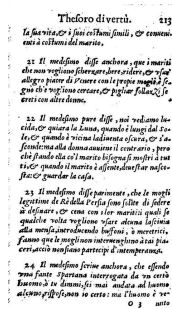 Thesoro di vertù. 213
la sua vita, & i suoi costumi simili, & conveni
enti à costumi del marito.
21 Il medesimo disse anchora, que i mariti
che non vogliono scherzare, bere, ridere, & usar
allegro piacer di Venere con le proprie mogli
gno ch'è vogliono cercare, & pigliar
creti con altre donne.
22 Il medesimo pure disse, noi vediamo lu-
cida, & quieta la Luna, quando è lungi dal So-
le, & quando è vicina la diventa oscura, & s'a-
sconde: ma alla donna avviene il contrario, pero
chè stando ella col marito bisogna si mostri à tut
ti, & quando il marito è assente, dee star nasco-
sta: & guardar la casa.
23 Il medesimo disse parimente, che le mogli
legittime de Rè della Persia sono solite di sedere
à desinare, & cena con i lor mariti: quali se
qualche volta vogliono usare alcuna lascivia
alla mensa, introducendo buffoni, ò meretrici,
fanno que le mogli non intervenghino à tai pia
ceri, acciò non sano partecipi d'intemperanza.
24 Il medesimo scrive anchora, che essendo
una fante Spartana interrogata da un certo
huomo s'tu dimmi, sei mai andata ad huomo
alcuno? rispose, non io certo: ma l'huomo è ve-
O 3 nuto